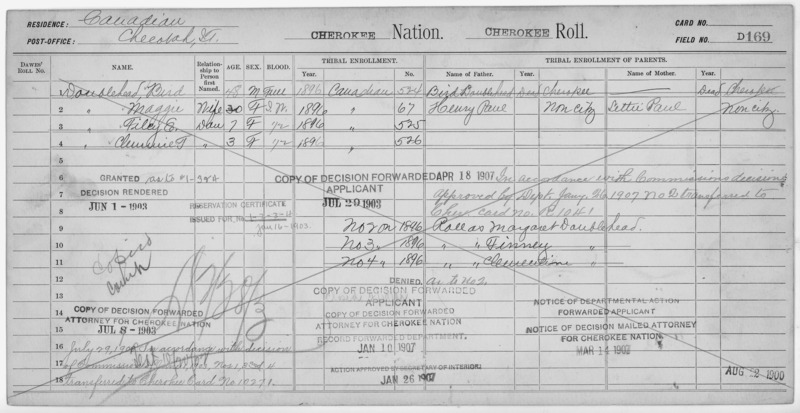 RESIDENCE: Canadian
POST-OFFICE: Checotah, I.T.
CHEROKEE Nation. CHEROKEE Roll.
CARD NO.
FIELD NO. D169
DAWES' ROLL NO. NAME. Relationship to Person first Named. AGE. SEX. BLOOD. TRIBAL ENROLLMENT. TRIBAL ENROLLMENT OF PARENTS.
Year. No. Name of Father. Year. Name of Mother. Year.
1 Doublehead, Bird 48 M Full 1896 Canadian 524 Bird Doublehead Dead Cherokee Dead Cherokee
2 " Maggie Wife 30 F I.W. 1896 " 67 Henry Paul Non city Lettie Paul Non city.
3 " Filey E. Dau 7 F 1/2 1896 " 525
4 " Clemmie T " 3 F 1/2 1896 " 526
5
6 GRANTED as to #1-3&4 COPY OF DECISION FORWARDED APR 18 1907 In accordance with Commissions decision
7 DECISION RENDERED APPLICANT approved by Dept. Jany. 26 1907 No 2 transferred to
8 JUN 1 - 1903 RESERVATION CERTIFICATE JUL 29 1903 Cher. card no. R 1041
ISSUED FOR No. 1-3-&4
9 Jan 16-1903 No 2 on 1896 Roll as Margaret Doublehead.
10 No 3 " 1896 " " Finney "
11 No 4 " 1896 " " Clementine "
12 DENIED as to No 2.
13 COPY OF DECISION FORWARDED
APPLICANT NOTICE OF DEPARTMENTAL ACTION
14 COPY OF DECISION FORWARDED COPY OF DECISION FORWARDED FORWARDED APPLICANT
ATTORNEY FOR CHEROKEE NATION ATTORNEY FOR CHEROKEE NATION NOTICE OF DECISION MAILED ATTORNEY
15 JUL 8 - 1903 RECORD FORWARDED DEPARTMENT. FOR CHEROKEE NATION.
16 July 29, 1903 In accordance with decision JAN 10 1907 MAR 14 1907
17 of Commission Nos 1, 3 & 4 ACTION APPROVED BY SECRETARY OF INTERIOR
18 Transferred to Cherokee Card No 10271. JAN 26 1907 AUG 2 1900